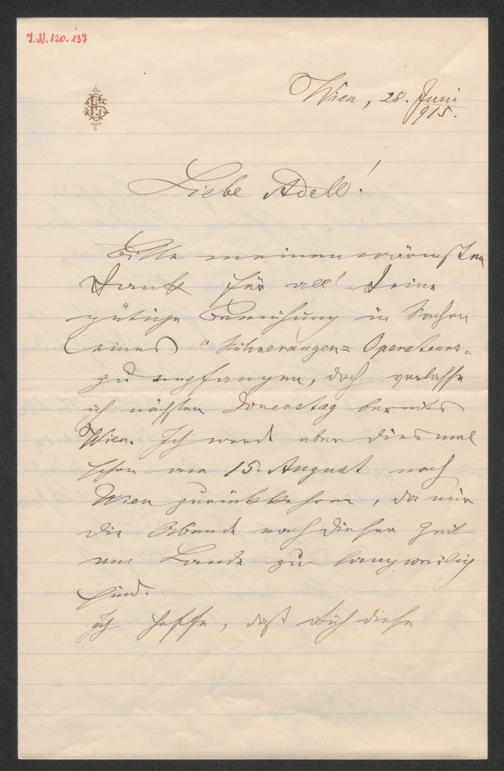 I.N. 120.137
Wien, 28. Juni
915.
Liebe Adele!
Bitte meinen wärmsten
Dank für all' Deine
gütige Bemühung in Sachen
eines "Hühneraugen=Operateurs"
zu empfangen, doch verlasse
ich nächsten Donnerstag bereits
Wien. Ich werde aber diesmal
schon am 15. August nach
Wien zurückkehren, da mir
die Abende nach dieser Zeit
am Lande zu langweilig
sind.
Ich hoffe, daß Dich diese